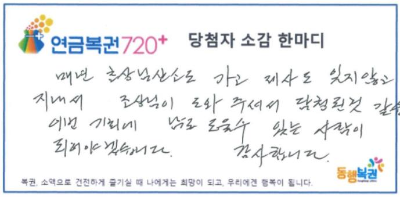 연금복권720+ 당첨자 소감 한마디
매년 조상님산소도 가고 제사도 잊지않고
지내서 조상님이 도와 주셔서 당첨된것 같습
이번 기회에 남도 도울수 있는 사람이
되어야겠습니다. 감사합니다.
동행복권
복권, 소액으로 건전하게 즐기실 때 나에게는 희망이 되고, 우리에겐 행복이 됩니다.